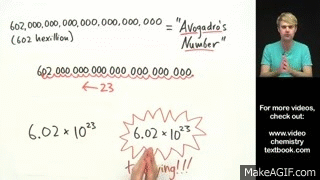 602,000,000,000,000,000,000,000
(602 hexillion)
= "Avogadro's
Number"
602,000,000,000,000,000,000,000.
← 23
6.02 × 10²³
6.02 × 10²³
For more videos,
check out:
www.video
chemistry
textbook.com
MakeAGIF.com